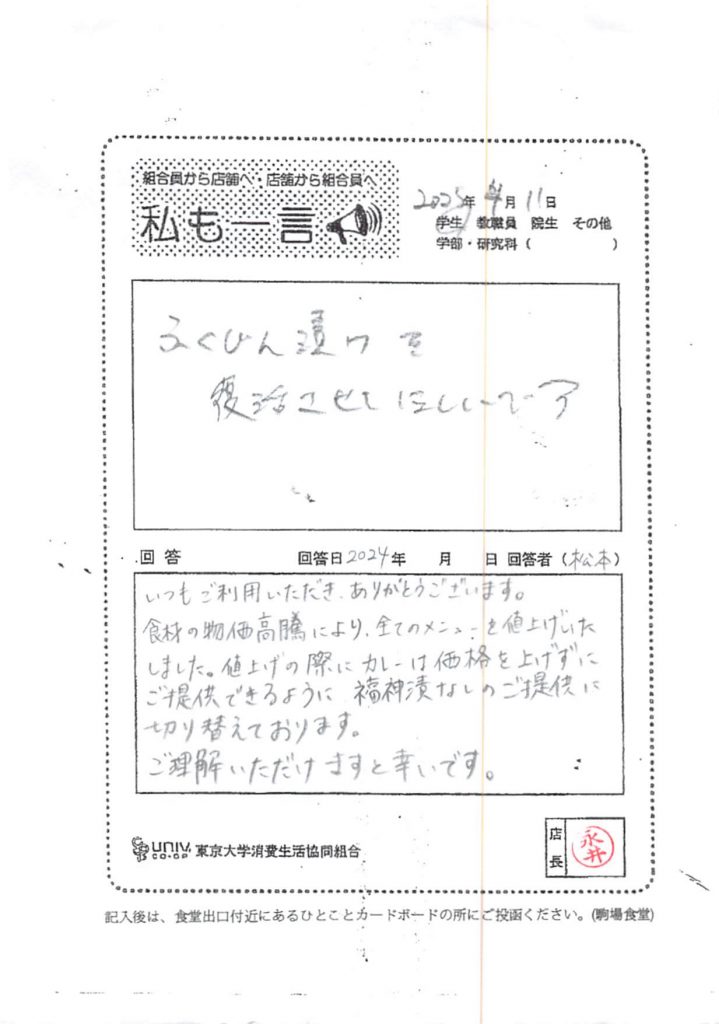 組合員から店舗へ・店舗から組合員へ
私も一言
2025年 4月 11日
学生 教職員 院生 その他
学部・研究科 ( )
ふくびん漬けを
復活させてほしいです
回答 回答日 2024年 月 日 回答者 (松本)
いつもご利用いただき、ありがとうございます。
食材の物価高騰により、全てのメニューを値上げいた
しました。値上げの際にカレーは価格を上げずに
ご提供できるように 福神漬なしのご提供に
切り替えております。
ご理解いただけますと幸いです。
UNIV. CO-OP 東京大学消費生活協同組合
店長 永井
記入後は、食堂出口付近にあるひとことカードボードの所にご投函ください。(駒場食堂)